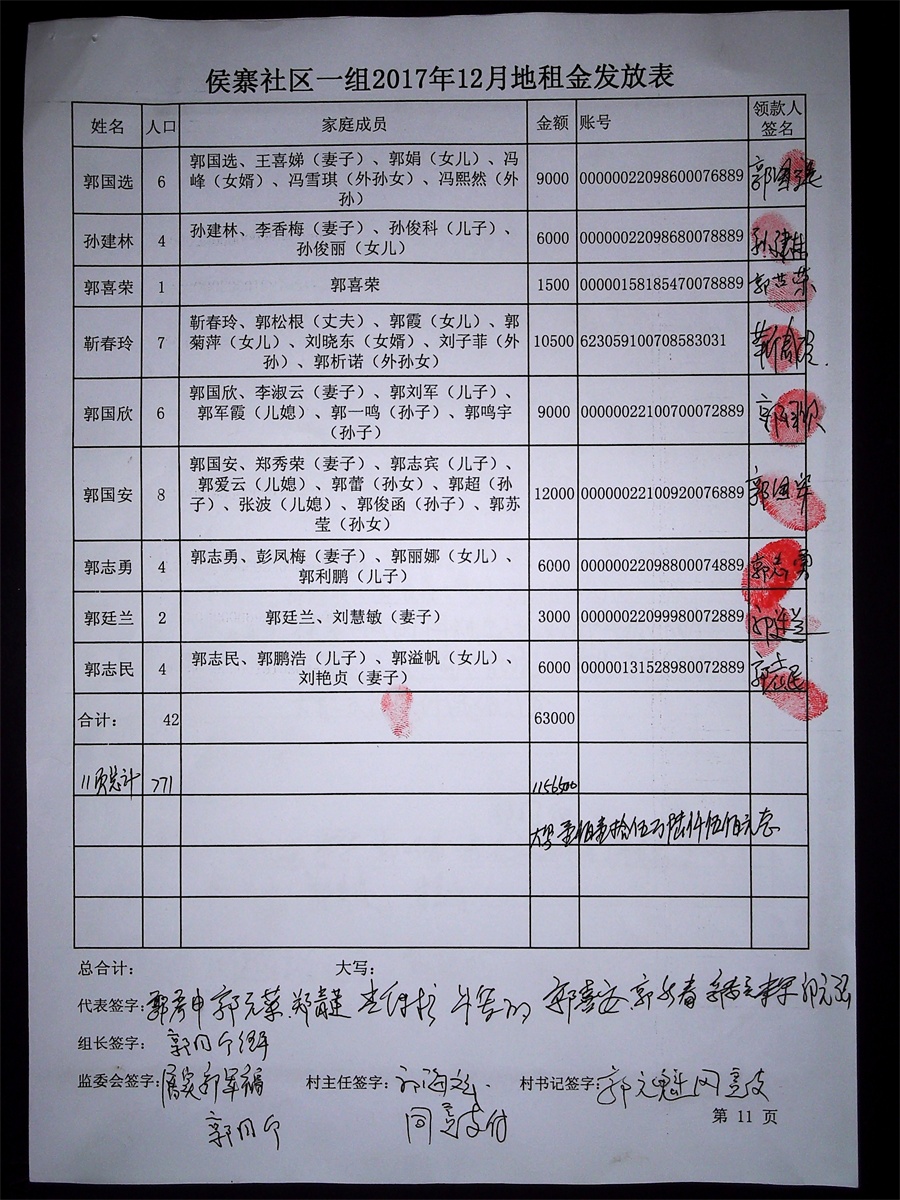 侯寨社区一组2017年12月地租金发放表
姓名 人口 家庭成员 金额 账号 领款人
签名
郭国选 6 郭国选、王喜娣（妻子）、郭娟（女儿）、冯
峰（女婿）、冯雪琪（外孙女）、冯熙然（外
孙） 9000 00000022098600076889 郭国选
孙建林 4 孙建林、李香梅（妻子）、孙俊科（儿子）、
孙俊丽（女儿） 6000 00000022098680078889 孙建林
郭喜荣 1 郭喜荣 1500 00000158185470078889 郭喜荣
靳春玲 7 靳春玲、郭松根（丈夫）、郭霞（女儿）、郭
菊萍（女儿）、刘晓东（女婿）、刘子菲（外
孙）、郭析诺（外孙女） 10500 623059100708583031
郭国欣 6 郭国欣、李淑云（妻子）、郭刘军（儿子）、
郭军霞（儿媳）、郭一鸣（孙子）、郭鸣宇
（孙子） 9000 00000022100700072889
郭国安 8 郭国安、郑秀荣（妻子）、郭志宾（儿子）、
郭爱云（儿媳）、郭蕾（孙女）、郭超（孙
子）、张波（儿媳）、郭俊函（孙子）、郭苏
莹（孙女） 12000 00000022100920076889
郭志勇 4 郭志勇、彭凤梅（妻子）、郭丽娜（女儿）、
郭利鹏（儿子） 6000 00000022098800074889 郭志勇
郭廷兰 2 郭廷兰、刘慧敏（妻子） 3000 00000022099980072889
郭志民 4 郭志民、郭鹏浩（儿子）、郭溢帆（女儿）、
刘艳贞（妻子） 6000 00000131528980072889 郭志民
合计： 42 63000
11页总计 771 1156500
大写壹佰壹拾伍万陆仟伍佰元整
总合计： 大写：
代表签字：
组长签字：
监委会签字： 村主任签字： 村书记签字：
同意支付
第 11 页